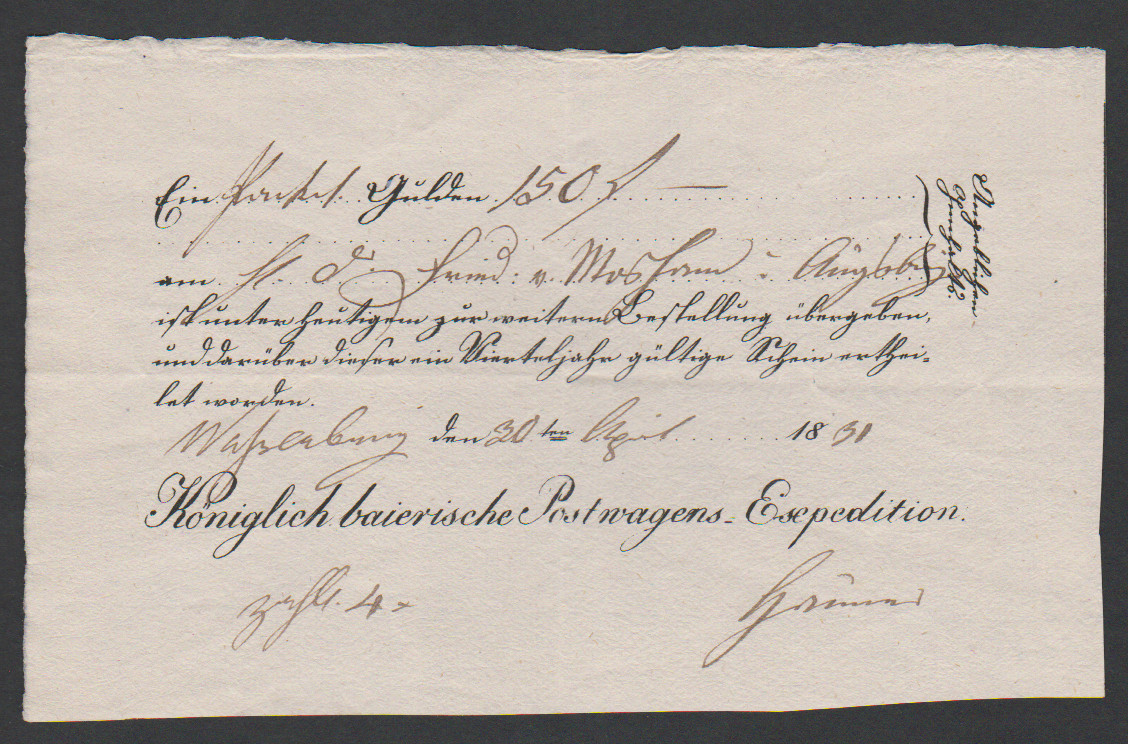 Ein Packet Gulden 150 f
am H. d. Fried: v. Mosham i Augsbg
ist unter heutigem zur weitern Bestellung übergeben,
und darüber dieser ein Vierteljahr gültige Schein erthei-
let worden.
Wasserburg den 30 ten April 1831
Königlich baierische Postwagens-Expedition.
zahlt. 4 x
Angeblichen